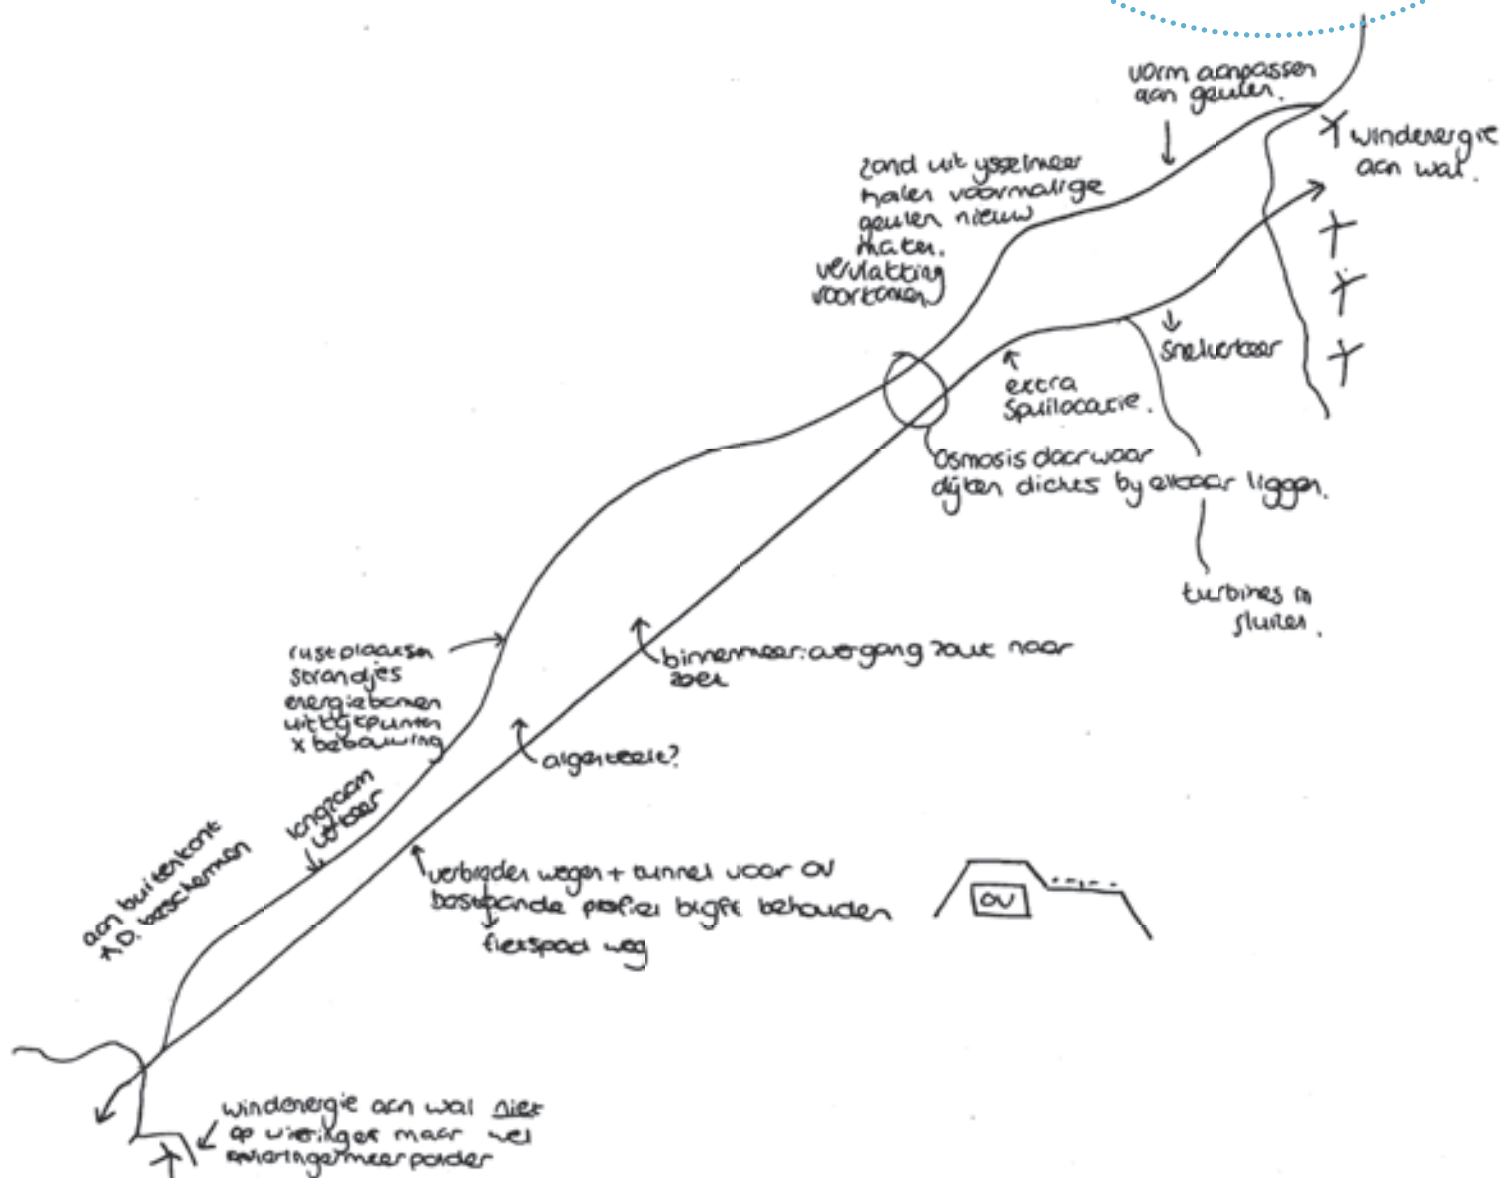 vorm aanpassen
aan geulen.
windenergie
aan wal.
zand uit ysselmeer
halen voormalige
geulen nieuw
maken.
vervlakking
voorkomen
snelverkeer
extra
spuilocatie.
Osmosis daar waar
dijken dichts by elkaar liggen.
turbines in
sluizen.
rustplaatsen
strandjes
energiebomen
uitkijkpunten
x bebouwing
binnenmeer: overgang zout naar
zoet
algenteelt?
langzaam
verkeer
aan buitenkant
A.D. beschermen
verbreden wegen + tunnel voor OV
bestaande profiel blijft behouden
fietspad weg
OV
windenergie aan wal niet
op wieringen maar wel
wieringermeerpolder